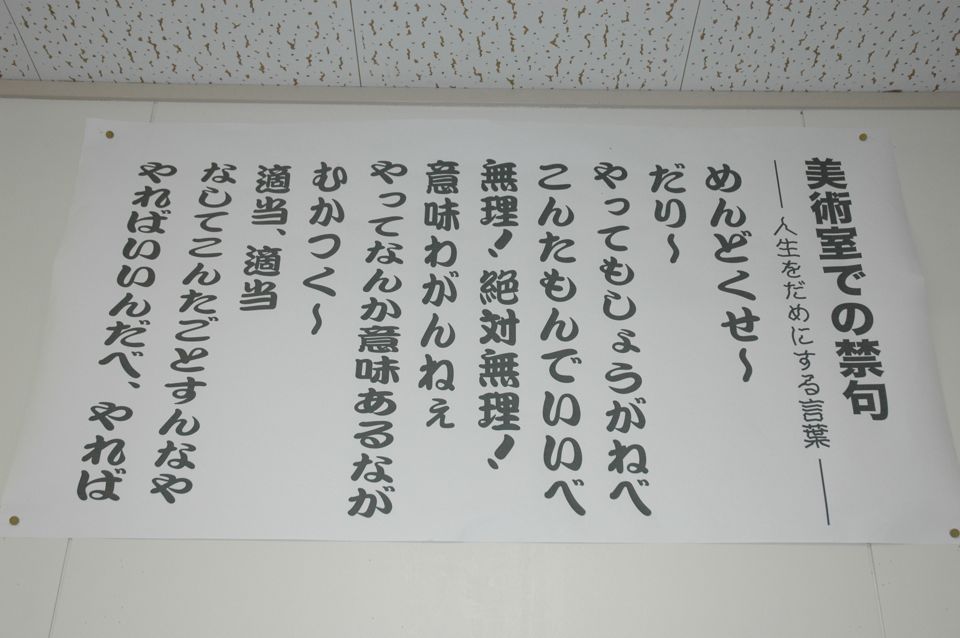 美術室での禁句
―― 人生をだめにする言葉 ――
めんどくせ～
だり～
やってもしょうがねべ
こんたもんでいいべ
無理！絶対無理！
意味わがんねぇ
やってなんか意味あるなが
むかつく～
適当、適当
なしてこんたごとすんなや
やればいいんだべ、やれば